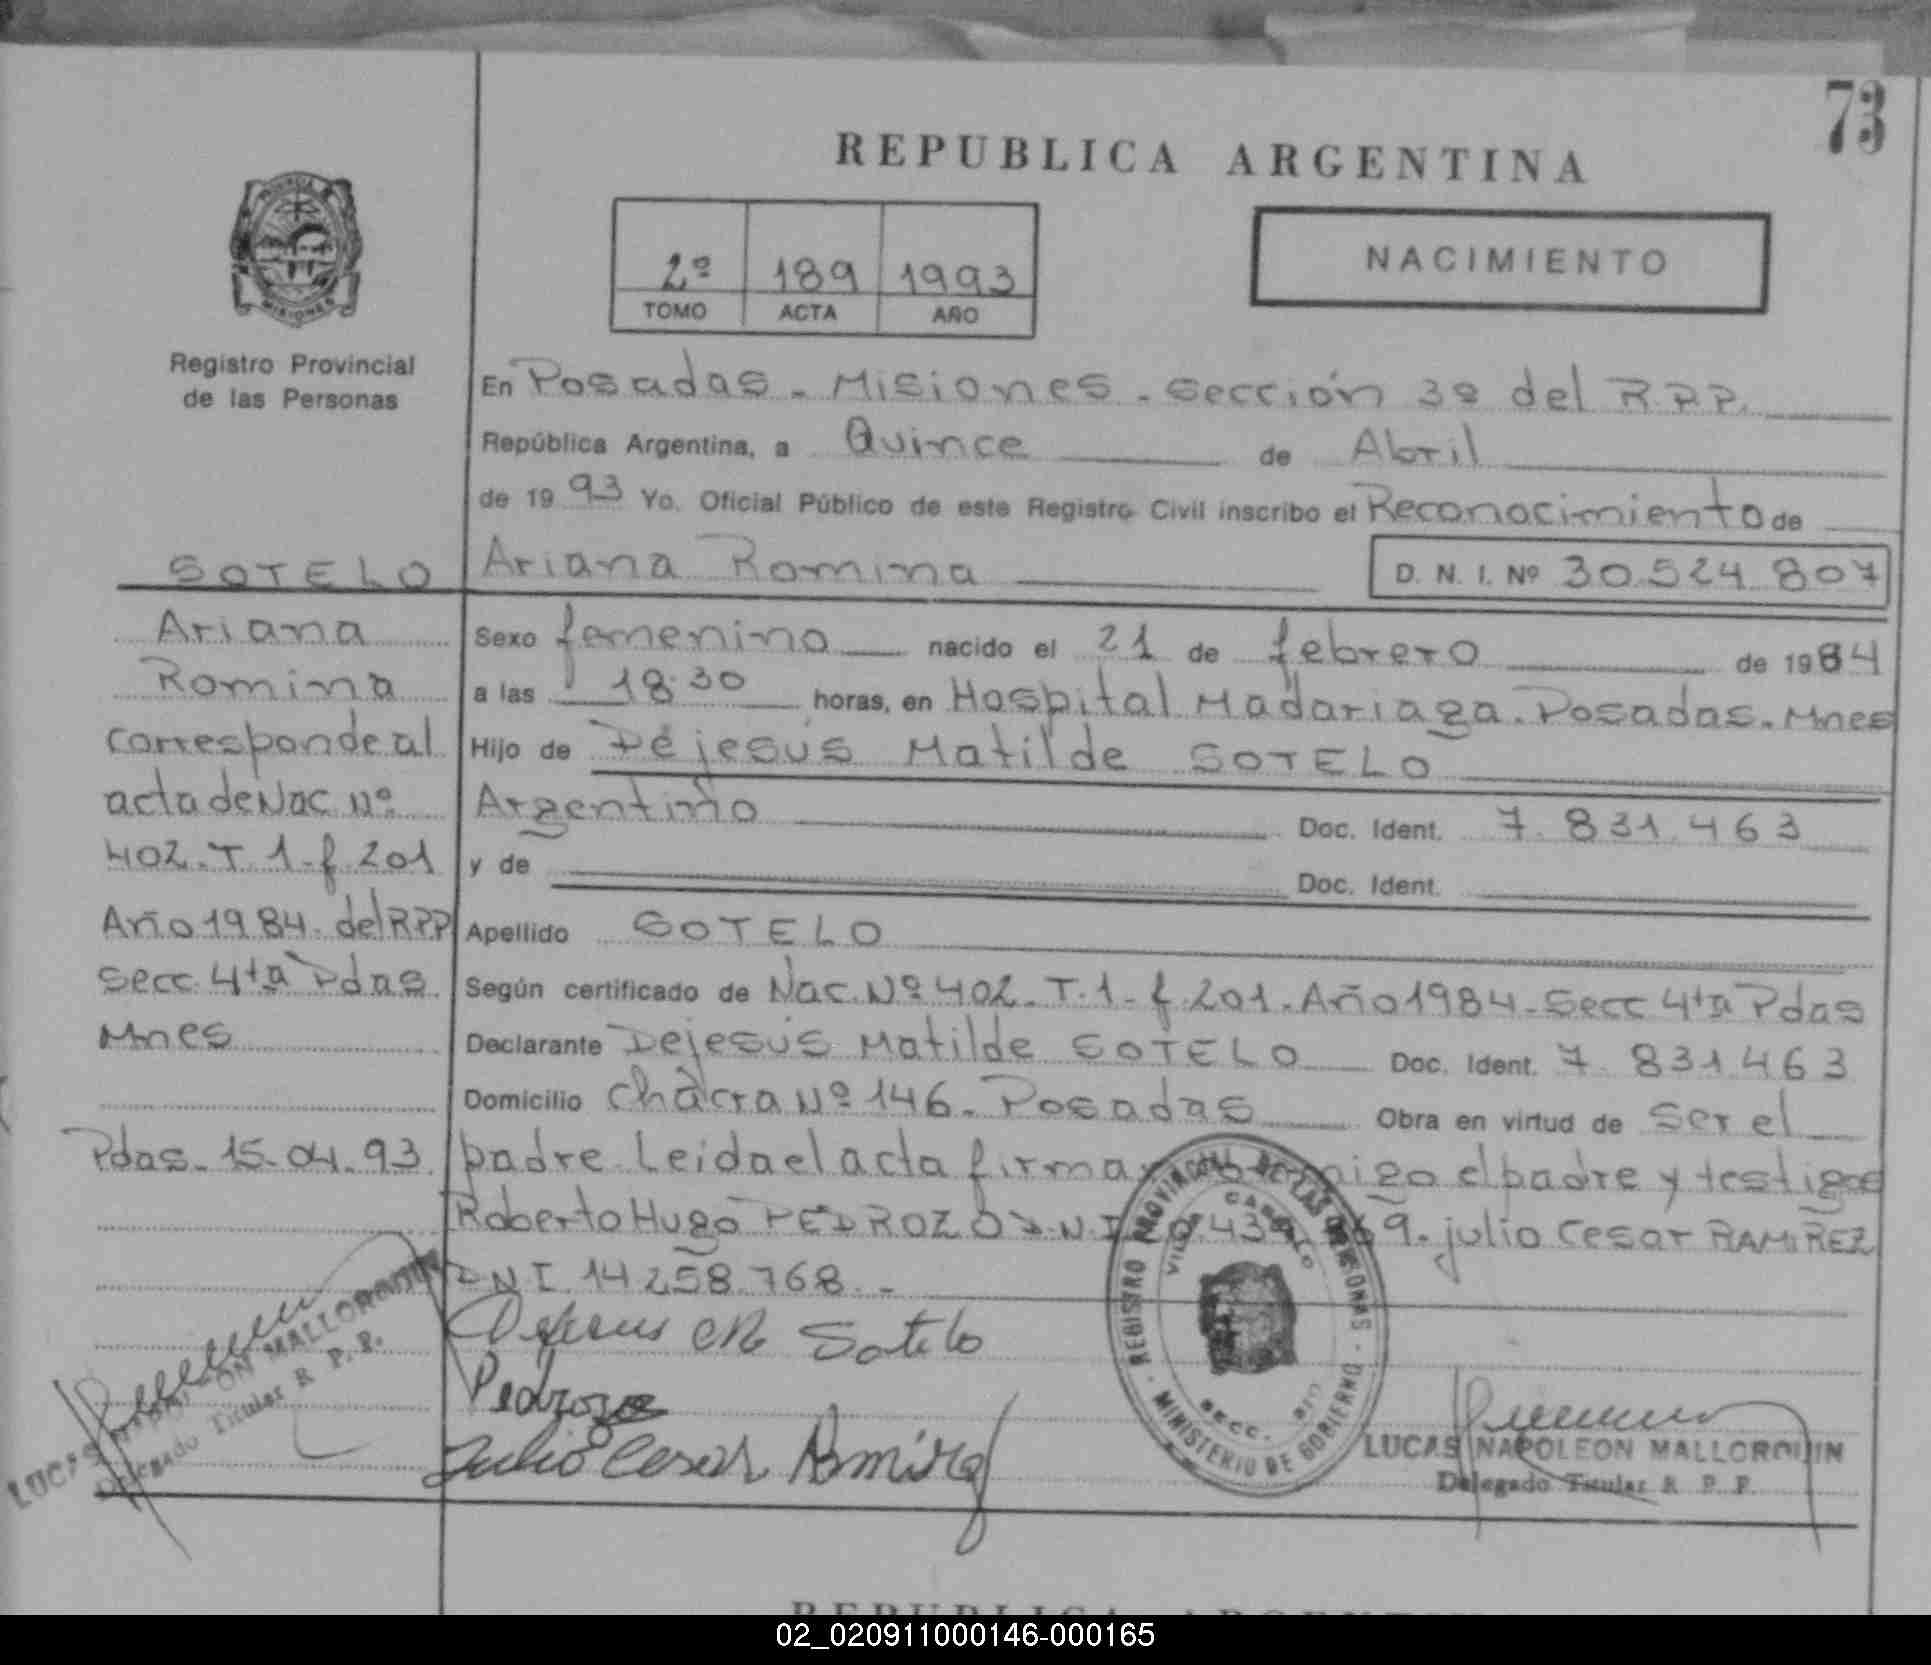 73
REPUBLICA ARGENTINA
2º 189 1993
TOMO ACTA AÑO
NACIMIENTO
MISIONES
Registro Provincial
de las Personas
En Posadas - Misiones - sección 3º del R.P.P.
República Argentina, a Quince de Abril
de 1993 Yo. Oficial Público de este Registro Civil inscribo el Reconocimiento de
Ariana Romina D. N. I. Nº 30.524.807
Sexo femenino nacido el 21 de febrero de 1984
a las 18:30 horas, en Hospital Madariaga. Posadas. Mnes
Hijo de Dejesús Matilde SOTELO
Argentino Doc. Ident. 7.831.463
y de Doc. Ident.
Apellido SOTELO
Según certificado de Nac. Nº 402. T. 1 - f. 201. Año 1984 - Secc 4ta Pdas
Declarante Dejesús Matilde SOTELO Doc. Ident. 7.831.463
Domicilio Chacra Nº 146. Posadas Obra en virtud de ser el
padre. Leida el acta firma conmigo el padre y testigos
Roberto Hugo PEDROZO D.N.I. julio Cesar RAMIREZ
DNI 14.258.768. -
Dejesus M Sotelo
Pedrozo
Julio Cesar Ramírez
REGISTRO PROVINCIAL DE LAS PERSONAS
MINISTERIO DE GOBIERNO
VILLA CABELLO
SECC.
LUCAS NAPOLEON MALLORQUIN
Delegado Titular R. P. P.
SOTELO
Ariana
Romina
corresponde al
acta de Nac. Nº
402. T. 1 - f. 201
Año 1984. del RPP
secc. 4ta Pdas
Mnes
Pdas. 15.04.93
LUCAS NAPOLEON MALLORQUIN
Delegado Titular R. P. P.
REPUBLICA ARGENTINA
02_020911000146-000165